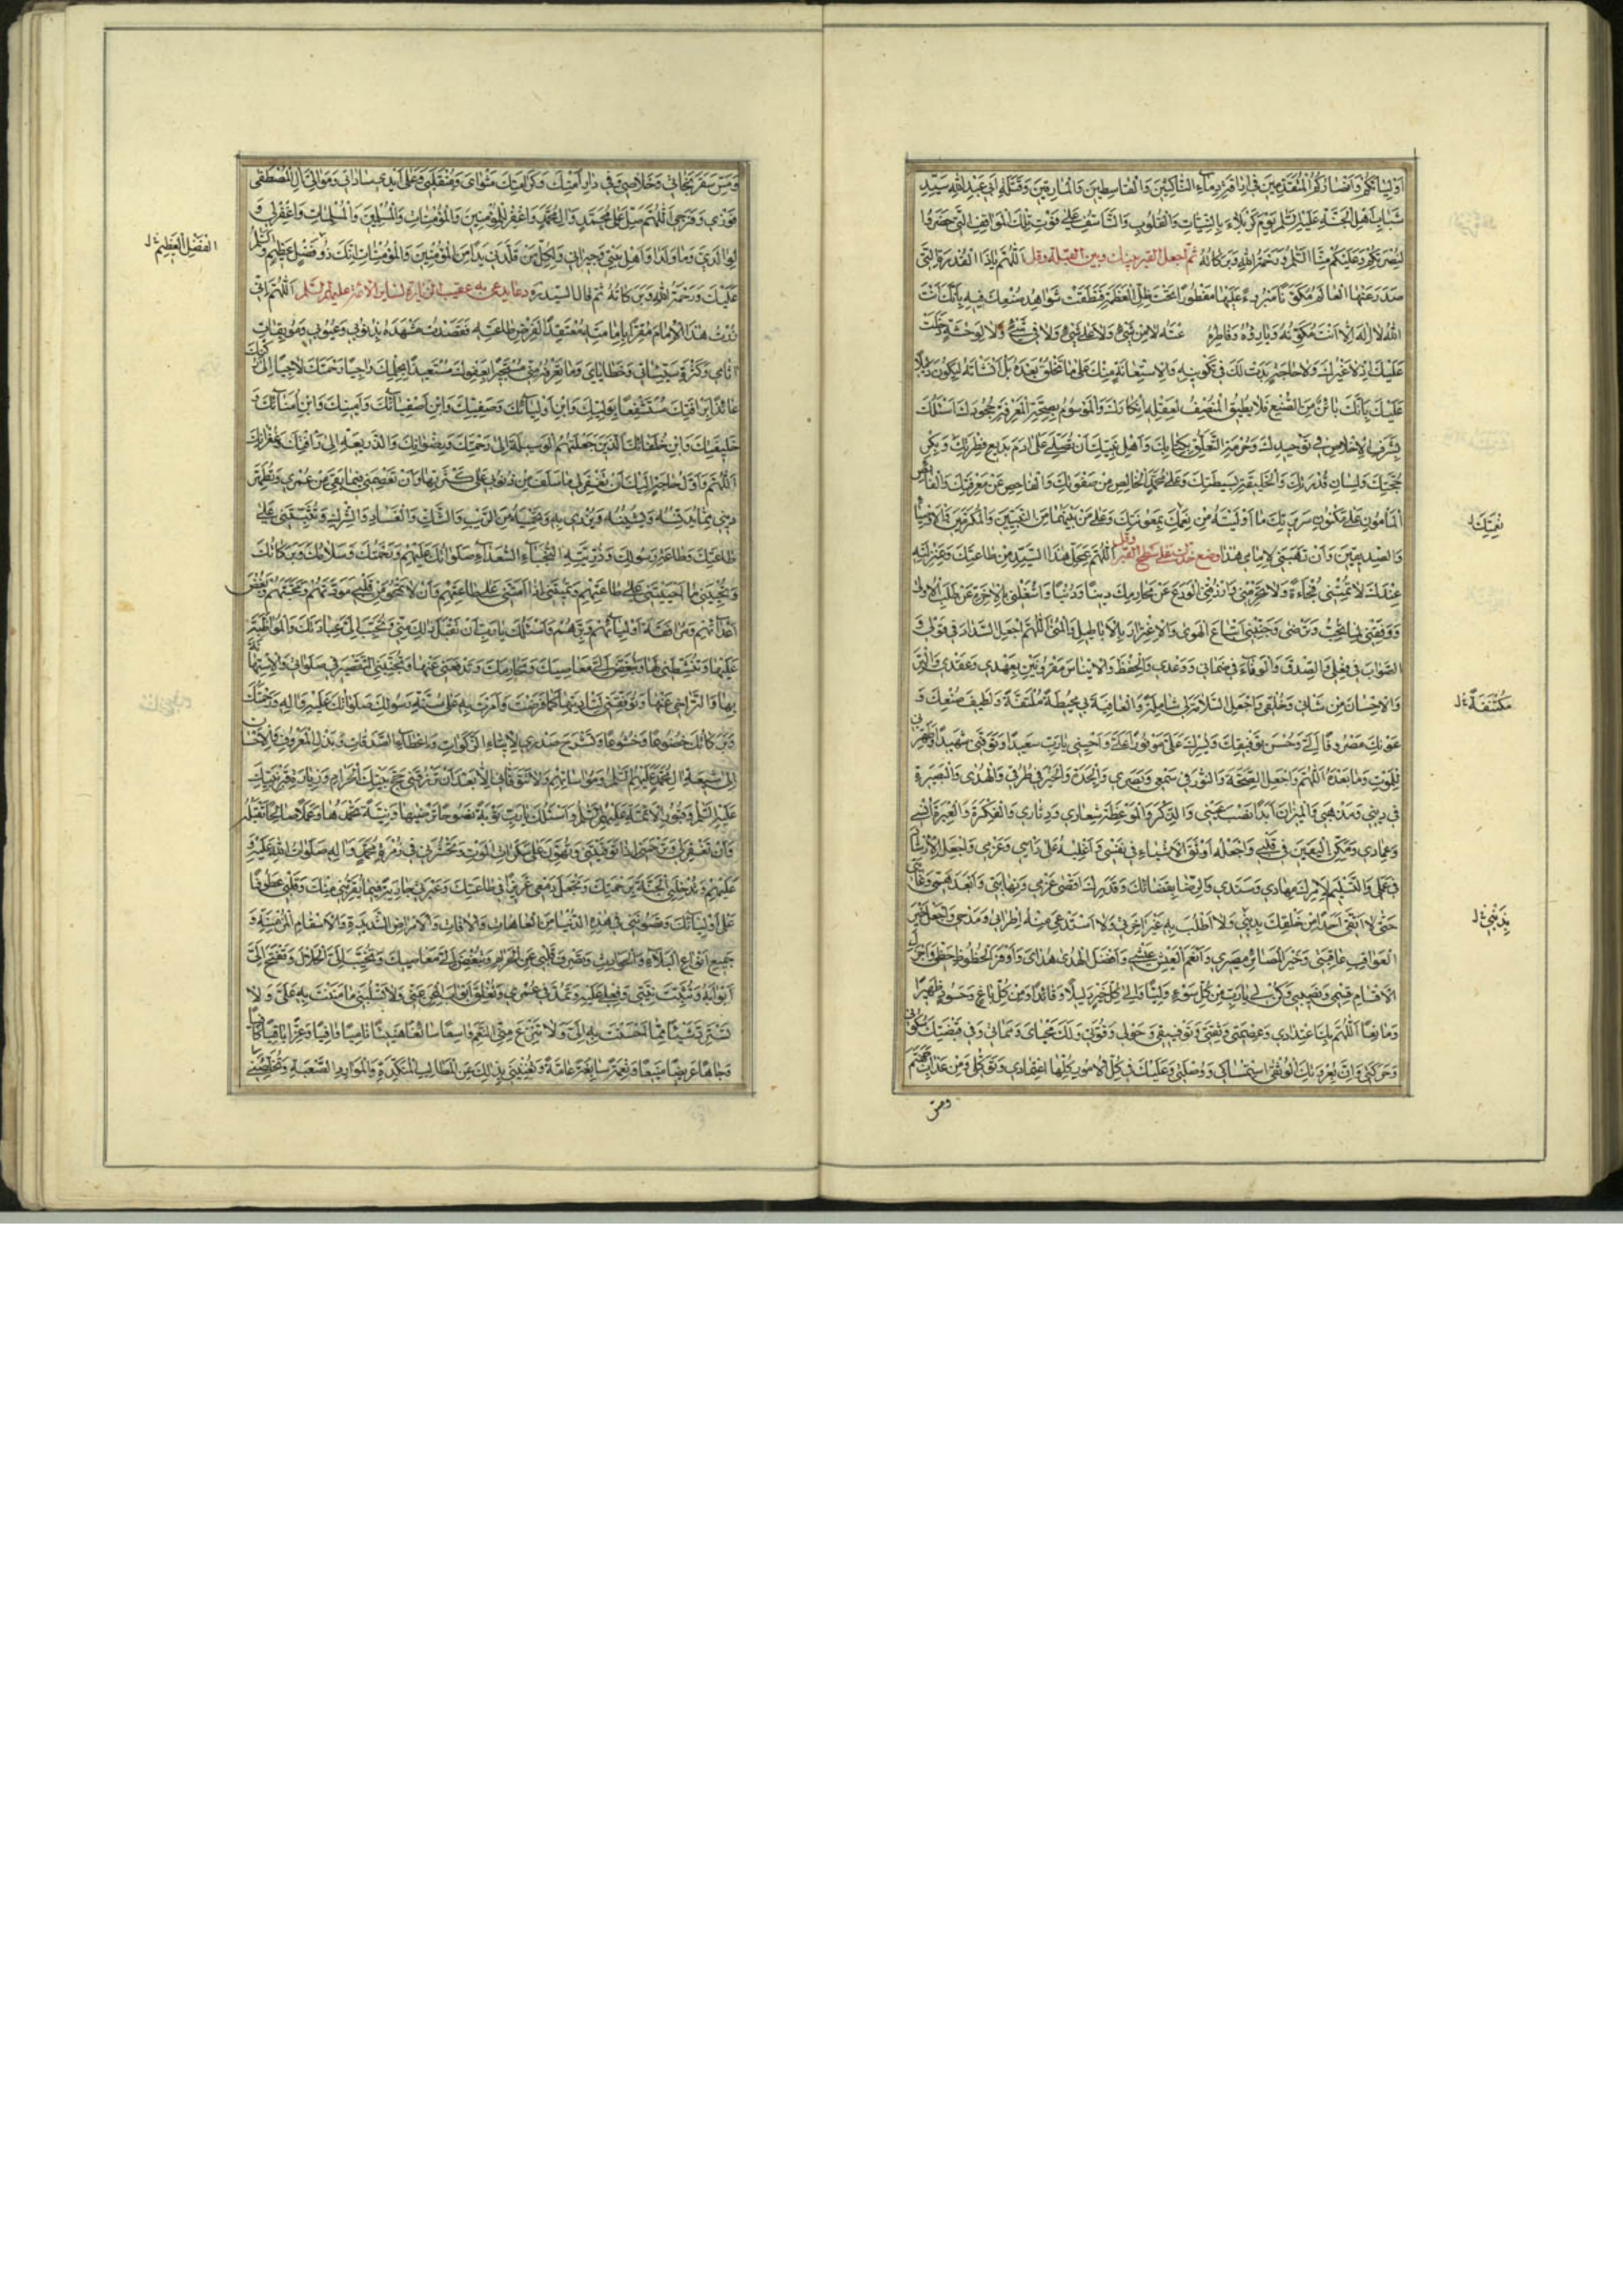 اَوْلِيٰائِكُمْ وَاَنْصٰارِكُمُ الْمُتَقَدِّمينَ في اِراقَةِ دِماءِ النّاكِثينَ وَالْقاسِطينَ وَالْمارِقينَ وَقَتَلَةِ اَبي عَبْدِ اللهِ سَيِّدِ
شَبابِ اَهْلِ الْجَنَّةِ عَلَيْهِ السَّلَمُ يَوْمَ كَرْبَلاءَ بِالنِّيّاتِ وَالْقُلُوبِ وَالتَّاَسُّفِ عَلى فَوْتِ تِلْكَ الْمَواقِفِ الَّتي حَضَرُوا
لِنُصْرَتِكُمْ وَعَلَيْكُمْ مِنَّا السَّلَمُ وَرَحْمَةُ اللهِ وَبَرَكاتُهُ ثم اجعل القبر بينك وبين القبلة وقل اَللّٰهُمَّ يا ذَا الْقُدْرَةِ الَّتي
صَدَرَ عَنْهَا الْعالَمُ مُكَوَّنًا مَبْرُوءًا عَلَيْها مَفْطُورًا تَحْتَ ظِلِّ الْعَظَمَةِ فَنَطَقَتْ شَواهِدُ صُنْعِكَ فيهِ بِاَنَّكَ اَنْتَ
اللهُ لا اِلٰهَ اِلّا اَنْتَ مُكَوِّنُهُ وَبارِئُهُ وَفاطِرُهُ ... لا مِنْ شَيْءٍ وَلا عَلى شَيْءٍ وَلا في شَيْءٍ وَلا لِوَحْشَةٍ دَخَلَتْ
عَلَيْكَ اِذْ لا غَيْرُكَ وَلا حاجَةٍ بَدَتْ لَكَ في تَكْوينِهِ وَلا لِاسْتِعانَةٍ مِنْكَ عَلى ما تَخْلُقُ بَعْدَهُ بَلْ اَنْشَاْتَهُ لِيَكُونَ دَليلًا
عَلَيْكَ بِاَنَّكَ بائِنٌ مِنَ الصُّنْعِ فَلا يُطيقُ الْمُنْصِفُ لِعَقْلِهِ اِنْكارَكَ وَالْمَوْسُومُ بِصِحَّةِ الْمَعْرِفَةِ جُحُودَكَ اَسْئَلُكَ
بِشَرَفِ الْاِخْلاصِ في تَوْحيدِكَ وَحُرْمَةِ التَّعَلُّقِ بِكِتابِكَ وَاَهْلِ بَيْتِكَ اَنْ تُصَلِّيَ عَلى اٰدَمَ بَديعِ فِطْرَتِكَ وَبِكْرِ
حُجَّتِكَ وَلِسانِ قُدْرَتِكَ وَالْخَليفَةِ في بَسيطَتِكَ وَعَلى مُحَمَّدٍ الْخالِصِ مِنْ صَفْوَتِكَ وَالْفاحِصِ عَنْ مَعْرِفَتِكَ وَالْغائِصِ
الْمَاْمُونِ عَلى مَكْنُونِ سَريرَتِكَ بِما اَوْلَيْتَهُ مِنْ نِعَمِكَ بِمَعُونَتِكَ وَعَلى مَنْ بَيْنَهُما مِنَ النَّبِيّينَ وَالْمُكَرَّمينَ وَالْاَوْصِياءِ
وَالصِّدّيقينَ وَاَنْ تَهَبَني لِاِمامي هٰذا وضع خدك على سطح القبر وقل اَللّٰهُمَّ بِمَحَلِّ هٰذَا السَّيِّدِ مِنْ طاعَتِكَ وَبِمَنْزِلَتِهِ
عِنْدَكَ لا تُمِتْني فُجاءَةً وَلا تَحْرِمْني تَوْبَةً وَارْزُقْنِي الْوَرَعَ عَنْ مَحارِمِكَ دينًا وَدُنْيًا وَاشْغَلْني بِالْاٰخِرَةِ عَنْ طَلَبِ الْاُولى
وَوَفِّقْني لِما تُحِبُّ وَتَرْضى وَجَنِّبْني اتِّباعَ الْهَوى وَالْاِغْتِرارَ بِالْاَباطيلِ وَالْمُنى اَللّٰهُمَّ اجْعَلِ السَّدادَ في قَوْلي وَ
الصَّوابَ في فِعْلي وَالصِّدْقَ وَالْوَفاءَ في ضَماني وَوَعْدي وَالْحِفْظَ وَالْايناسَ مَقْرُونَيْنِ بِعَهْدي وَعَقْدي وَالْبِرَّ
وَالْاِحْسانَ مِنْ شَاْني وَخُلْقي وَاجْعَلِ السَّلامَةَ لي شامِلَةً وَالْعافِيَةَ بي مُحيطَةً مُلْتَفَّةً وَلَطيفَ صُنْعِكَ وَ
عَوْنِكَ مَصْرُوفًا اِلَيَّ وَحُسْنَ تَوْفيقِكَ وَيُسْرِكَ عَلَيَّ مَوْفُورًا وَاَحْيِني يا رَبِّ سَعيدًا وَتَوَفَّني شَهيدًا وَطَهِّرْني
لِلْمَوْتِ وَما بَعْدَهُ اَللّٰهُمَّ وَاجْعَلِ الصِّحَّةَ وَالنُّورَ في سَمْعي وَبَصَري وَالْجِدَةَ وَالْخَيْرَ في طُرُقي وَالْهُدى وَالْبَصيرَةَ
في ديني وَمَذْهَبي وَالْميزانَ اَبَدًا نُصْبَ عَيْني وَالذِّكْرَ وَالْمَوْعِظَةَ شِعاري وَدِثاري وَالْفِكْرَةَ وَالْعِبْرَةَ اُنْسي
وَعِمادي وَمَكِّنِ الْيَقينَ في قَلْبي وَاجْعَلْهُ اَوْثَقَ الْاَشْياءِ في نَفْسي وَاَغْلِبْهُ عَلى رَاْيي وَعَزْمي وَاجْعَلِ الْاِرْشادَ
في عَمَلي وَالتَّسْليمَ لِاَمْرِكَ مِهادي وَسَنَدي وَالرِّضا بِقَضائِكَ وَقَدَرِكَ اَقْصى عَزْمي وَنِهايَتي وَاَبْعَدَ هَمّي وَغايَتي
حَتّى لا اَتَّقِيَ اَحَدًا مِنْ خَلْقِكَ بِديني وَلا اَطْلُبَ بِهِ غَيْرَ اٰخِرَتي وَلا اَسْتَدْعِيَ مِنْهُ اِطْرائي وَمَدْحي وَاجْعَلْ خَيْرَ
الْعَواقِبِ عاقِبَتي وَخَيْرَ الْمَصائِرِ مَصيري وَاَنْعَمَ الْعَيْشِ عَيْشي وَاَفْضَلَ الْهُدى هُدايَ وَاَوْفَرَ الْحُظُوظِ حَظّي وَاَجْزَلَ
الْاَقْسامِ قِسْمي وَنَصيبي وَكُنْ لي يا رَبِّ مِنْ كُلِّ سُوءٍ وَلِيًّا وَاِلى كُلِّ خَيْرٍ دَليلًا وَقائِدًا وَمِنْ كُلِّ باغٍ وَحَسُودٍ ظَهيرًا
وَمانِعًا اَللّٰهُمَّ بِكَ اعْتِدادي وَعِصْمَتي وَثِقَتي وَتَوْفيقي وَحَوْلي وَقُوَّتي وَلَكَ مَحْيايَ وَمَماتي وَفي قَبْضَتِكَ سُكُوني
وَحَرَكَتي وَاِنَّ بِعُرْوَتِكَ الْوُثْقى اسْتِمْساكي وَوُصْلَتي وَعَلَيْكَ في كُلِّ الْاُمُورِ كُلِّهَا اعْتِمادي وَتَوَكُّلي وَمِنْ عَذابِ جَهَنَّمَ
ومس
نِعْمَتِكَ
مُكْتَنِفَةً
وَمَسِّ سَقَرَ نَجاتي وَخَلاصي وَفي دارِ اَمْنِكَ وَكَرامَتِكَ مَثْوايَ وَمُنْقَلَبي وَعَلى اَيْدي ساداتي وَمَوالِيَّ اٰلِ الْمُصْطَفى
فَوْزي وَفَرَجي اَللّٰهُمَّ صَلِّ عَلى مُحَمَّدٍ وَاٰلِ مُحَمَّدٍ وَاغْفِرْ لِلْمُؤْمِنينَ وَالْمُؤْمِناتِ وَالْمُسْلِمينَ وَالْمُسْلِماتِ وَاغْفِرْ لي وَ
لِوالِدَيَّ وَما وَلَدا وَاَهْلِ بَيْتي وَجيراني وَلِكُلِّ مَنْ قَلَّدَني يَدًا مِنَ الْمُؤْمِنينَ وَالْمُؤْمِناتِ اِنَّكَ ذُو فَضْلٍ عَظيمٍ وَالسَّلَمُ
عَلَيْكَ وَرَحْمَةُ اللهِ وَبَرَكاتُهُ ثم قال السيد ره دعا يدعى به عقيب الزيارة لساير الائمة عليهم السلم اَللّٰهُمَّ اِنّي
زُرْتُ هٰذَا الْاِمامَ مُقِرًّا بِاِمامَتِهِ مُعْتَقِدًا لِفَرْضِ طاعَتِهِ فَقَصَدْتُ مَشْهَدَهُ بِذُنُوبي وَعُيُوبي وَمُوبِقاتِ
اٰثامي وَكَثْرَةِ سَيِّئاتي وَخَطايايَ وَما تَعْرِفُهُ مِنّي مُسْتَجيرًا بِعَفْوِكَ مُسْتَعيذًا بِحِلْمِكَ راجِيًا رَحْمَتَكَ لاجِيًا اِلى رُكْنِكَ
عائِذًا بِرَاْفَتِكَ مُسْتَشْفِعًا بِوَلِيِّكَ وَابْنِ اَوْلِيائِكَ وَصَفِيِّكَ وَابْنِ اَصْفِيائِكَ وَاَمينِكَ وَابْنِ اُمَنائِكَ وَ
خَليفَتِكَ وَابْنِ خُلَفائِكَ الَّذينَ جَعَلْتَهُمُ الْوَسيلَةَ اِلى رَحْمَتِكَ وَرِضْوانِكَ وَالذَّريعَةَ اِلى رَاْفَتِكَ وَغُفْرانِكَ
اَللّٰهُمَّ وَاَوَّلُ حاجَتي اِلَيْكَ اَنْ تَغْفِرَ لي ما سَلَفَ مِنْ ذُنُوبي عَلى كَثْرَتِها وَاَنْ تَعْصِمَني فيما بَقِيَ مِنْ عُمْري وَتُطَهِّرَ
ديني مِمّا يُدَنِّسُهُ وَيَشينُهُ وَيُزْري بِهِ وَتَحْمِيَهُ مِنَ الرَّيْبِ وَالشَّكِّ وَالْفَسادِ وَالشِّرْكِ وَتُثَبِّتَني عَلى
طاعَتِكَ وَطاعَةِ رَسُولِكَ وَذُرِّيَّتِهِ النُّجَباءِ السُّعَداءِ صَلَواتُكَ عَلَيْهِمْ وَرَحْمَتُكَ وَسَلامُكَ وَبَرَكاتُكَ
وَتُحْيِيَني ما اَحْيَيْتَني عَلى طاعَتِهِمْ وَتُميتَني اِذا اَمَتَّني عَلى طاعَتِهِمْ وَاَنْ لا تَمْحُوَ مِنْ قَلْبي مَوَدَّتَهُمْ وَمَحَبَّتَهُمْ وَبُغْضَ
اَعْدائِهِمْ وَمُرافَقَةَ اَوْلِيائِهِمْ وَبِرَّهُمْ وَاَسْئَلُكَ يا رَبِّ اَنْ تَقْبَلَ ذٰلِكَ مِنّي وَتُحَبِّبَ اِلَيَّ عِبادَتَكَ وَالْمُواظَبَةَ
عَلَيْها وَتُنَشِّطَني لَها وَتُبَغِّضَ اِلَيَّ مَعاصِيَكَ وَمَحارِمَكَ وَتَدْفَعَني عَنْها وَتُجَنِّبَنِي التَّقْصيرَ في صَلَواتي وَالْاِسْتِهانَةَ
بِها وَالتَّراخِيَ عَنْها وَتُوَفِّقَني لِتَاْدِيَتِها كَما فَرَضْتَ وَاَمَرْتَ بِهِ عَلى سُنَّةِ رَسُولِكَ صَلَواتُكَ عَلَيْهِ وَاٰلِهِ وَرَحْمَتُكَ
وَبَرَكاتُكَ خُضُوعًا وَخُشُوعًا وَتَشْرَحَ صَدْري لِايتاءِ الزَّكَواتِ وَاِعْطاءِ الصَّدَقاتِ وَبَذْلِ الْمَعْرُوفِ وَالْاِحْسانِ
اِلى شيعَةِ اٰلِ مُحَمَّدٍ عَلَيْهِمُ السَّلَمُ وَمُواساتِهِمْ وَلا تَتَوَفّاني اِلّا بَعْدَ اَنْ تَرْزُقَني حَجَّ بَيْتِكَ الْحَرامِ وَزِيارَةَ قَبْرِ نَبِيِّكَ
عَلَيْهِ السَّلَمُ وَقُبُورِ الْاَئِمَّةِ عَلَيْهِمُ السَّلَمُ وَاَسْئَلُكَ يا رَبِّ تَوْبَةً نَصُوحًا تَرْضيها وَنِيَّةً تَحْمَدُها وَعَمَلًا صالِحًا تَقْبَلُهُ
وَاَنْ تَغْفِرَ لي وَتَرْحَمَني اِذا تَوَفَّيْتَني وَتُهَوِّنَ عَلَيَّ سَكَراتِ الْمَوْتِ وَتَحْشُرَني في زُمْرَةِ مُحَمَّدٍ وَاٰلِهِ صَلَواتُ اللهِ عَلَيْهِ وَ
عَلَيْهِمْ وَتُدْخِلَنِي الْجَنَّةَ بِرَحْمَتِكَ وَتَجْعَلَ دَمْعي غَزيرًا في طاعَتِكَ وَعَبْرَتي جارِيَةً فيما يُقَرِّبُني مِنْكَ وَقَلْبي عَطُوفًا
عَلى اَوْلِيائِكَ وَتَصُونَني في هٰذِهِ الدُّنْيا مِنَ الْعاهاتِ وَالْاٰفاتِ وَالْاَمْراضِ الشَّديدَةِ وَالْاَسْقامِ الْمُزْمِنَةِ وَ
جَميعِ اَنْواعِ الْبَلاءِ وَالْحَوادِثِ وَتَصْرِفَ قَلْبي عَنِ الْحَرامِ وَتُبَغِّضَ اِلَيَّ مَعاصِيَكَ وَتُحَبِّبَ اِلَيَّ الْحَلالَ وَتَفْتَحَ اِلَيَّ
اَبْوابَهُ وَتُثَبِّتَ نِيَّتي وَفِعْلي عَلَيْهِ وَتَمُدَّ في عُمْري وَتُغْلِقَ اَبْوابَ الْمِحَنِ عَنّي وَلا تَسْلُبَني ما مَنَنْتَ بِهِ عَلَيَّ وَلا
تَسْتَرِدَّ شَيْئًا مِمّا اَحْسَنْتَ بِهِ اِلَيَّ وَلا تَنْزِعَ مِنِّي النِّعَمَ واسِعًا سائِغًا هَنيئًا نامِيًا وافِيًا وَعِزًّا باقِيًا كافِيًا
وَجاهًا عَريضًا مَنيعًا وَنِعْمَةً سابِغَةً عامَّةً وَتُغْنِيَني بِذٰلِكَ عَنِ الْمَطالِبِ الْمُنَكَّدَةِ وَالْمَوارِدِ الصَّعْبَةِ وَتُخَلِّصَني
الفَضْلِ الْعَظيمِ